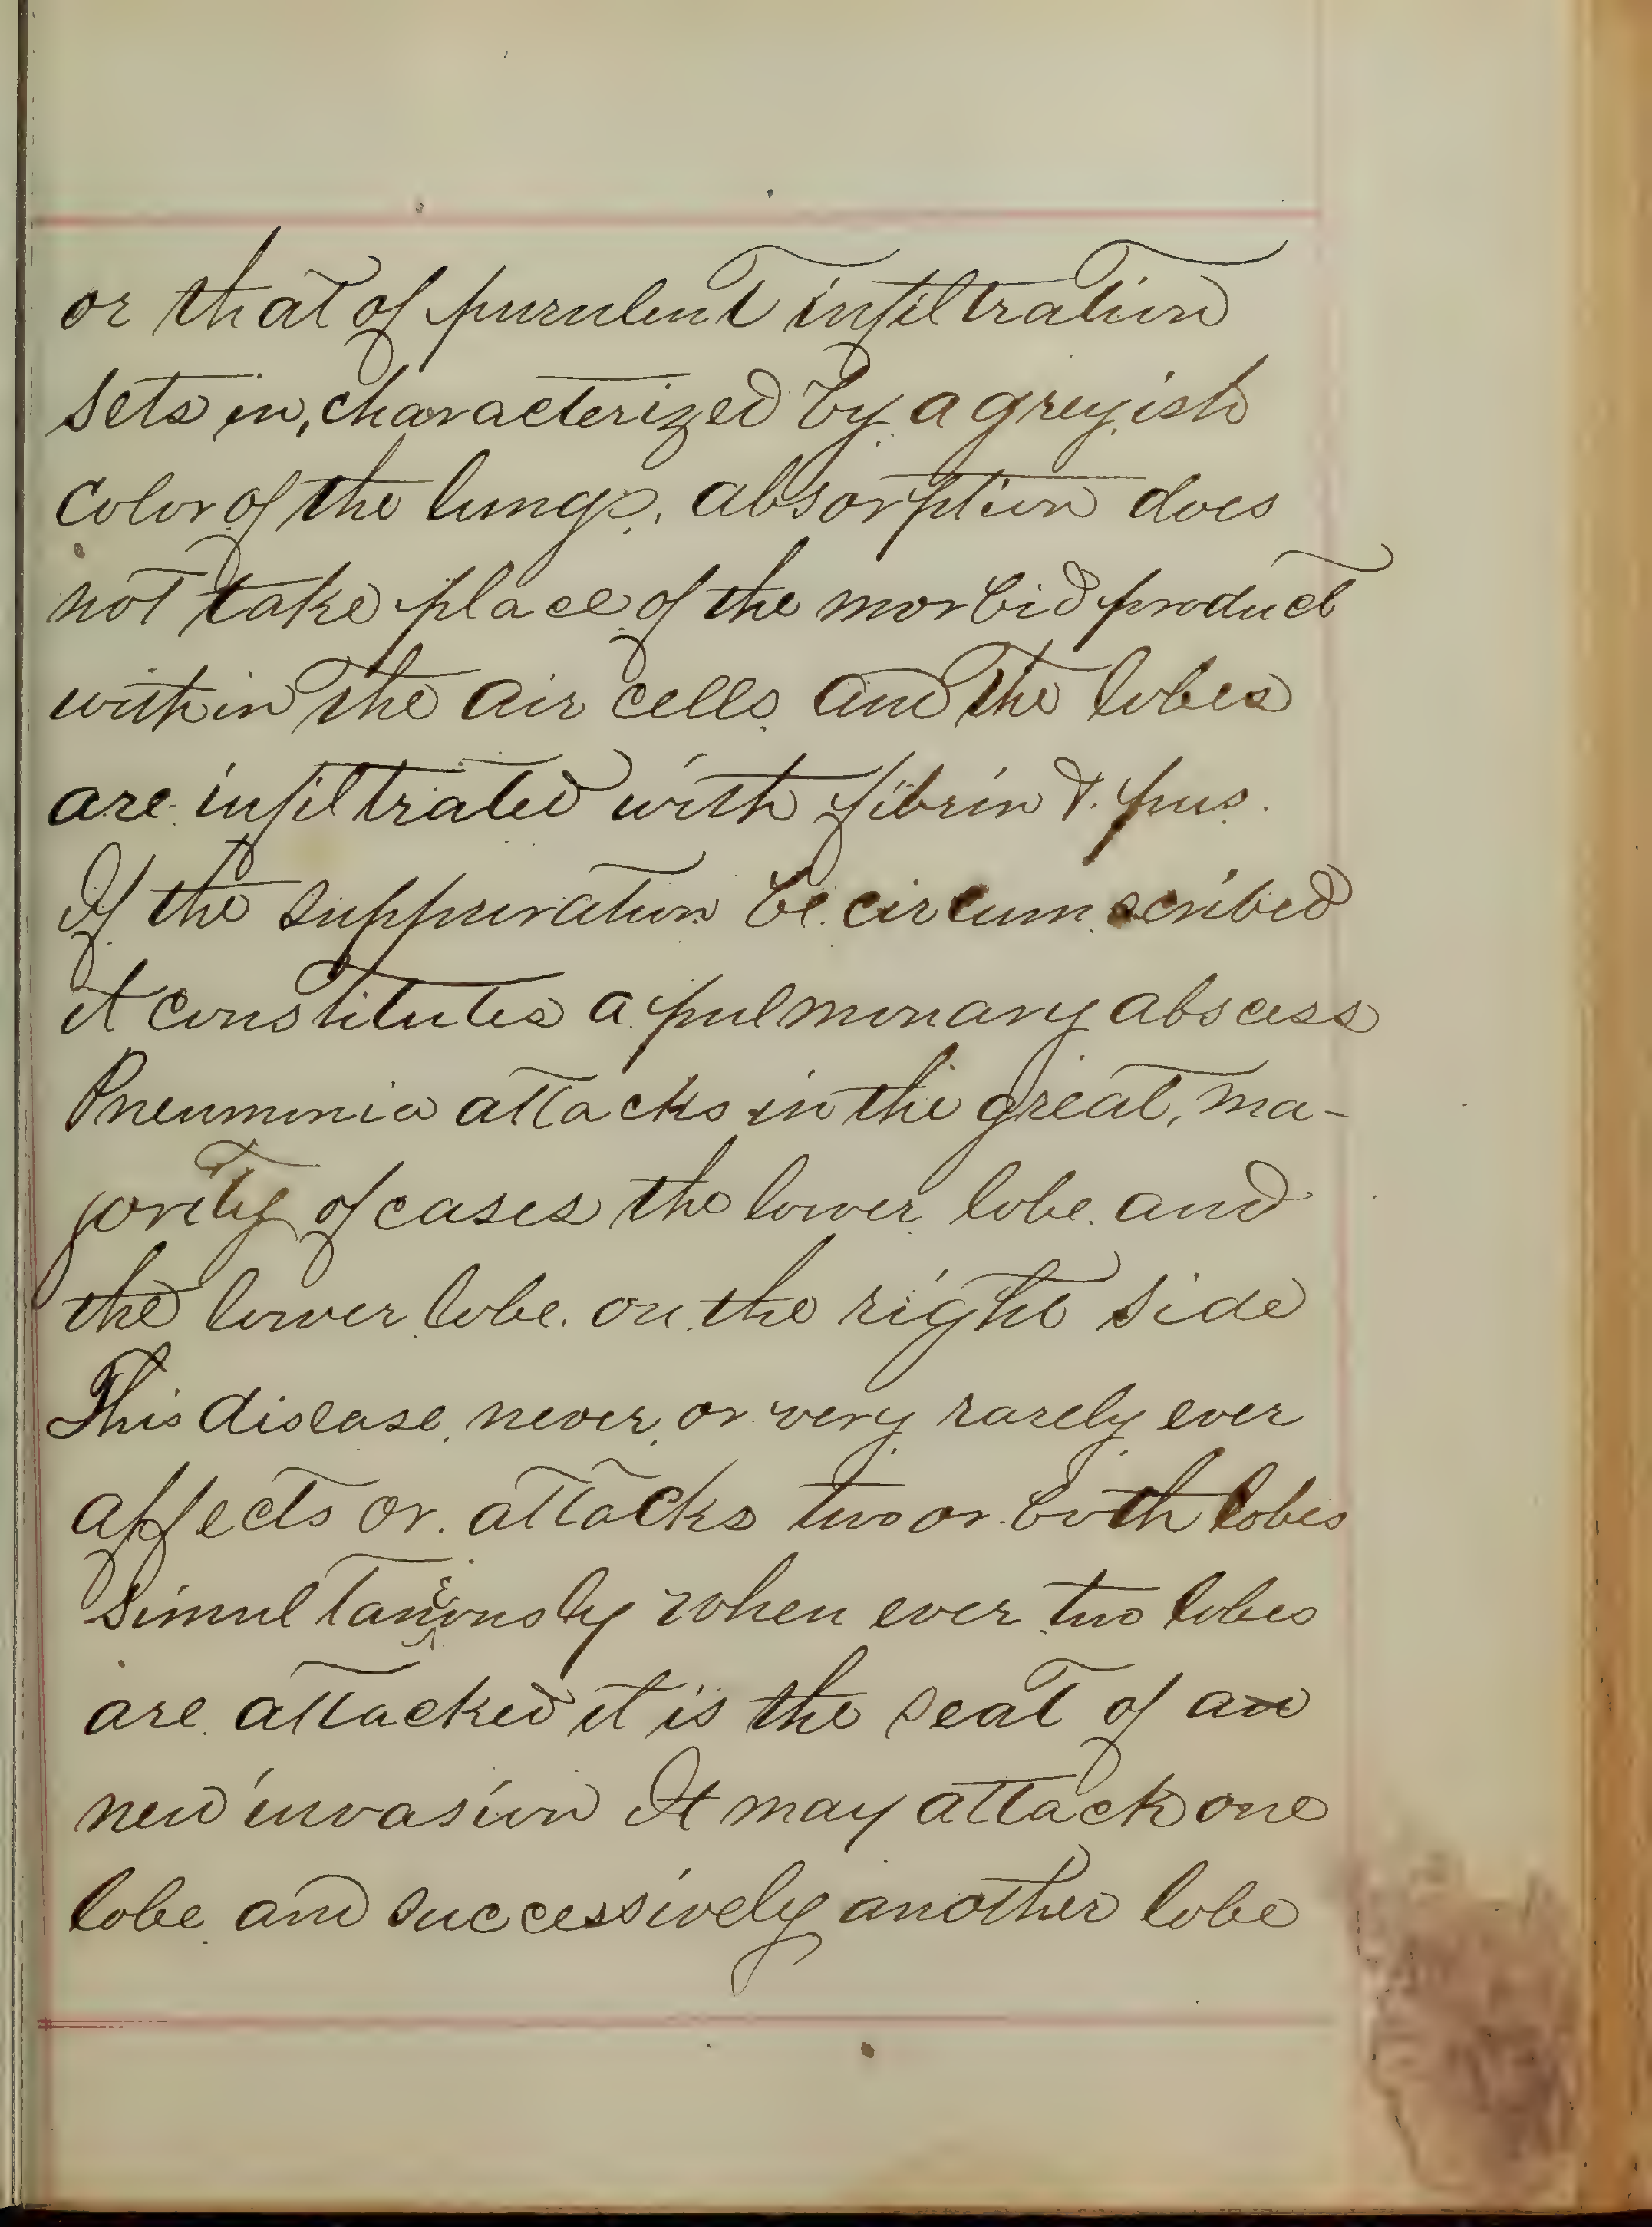 or that of purulent infiltration
sets in, characterized by a greyish
color of the lungs, absorption does
not take place of the morbid product
within the air cells and the lobes
are infiltrated with fibrin & pus.
If the suppuration be circumscribed
it constitutes a pulmonary abscess
Pneumonia attacks in the great, ma-
jority of cases the lower lobe and
the lower lobe. on the right side
This disease, never, or very rarely ever
affects or attacks two or both lobes
simultaneously when ever two lobes
are attacked it is the seat of a
new invasion It may attack one
lobe and successively another lobe